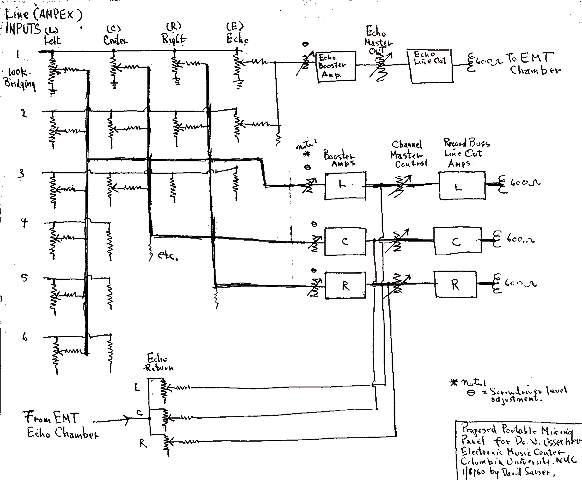 Line (AMPEX)
INPUTS (L) (C) (R) (E)
Left Center Right Echo
1
100K
Bridging
2
3
4
5
6
etc.
Echo
Booster
Amp.
Echo
Master
Out
Echo
Line Out
600Ω To EMT
Chamber
note 1
*
Booster
Amps
Channel
Master
Control
Record Buss
Line Out
Amps
L L 600Ω
C C 600Ω
R R 600Ω
Echo
Return
L
C
R
From EMT
Echo Chamber
* note 1
⊖ = Screwdriver level
adjustment.
Proposed Portable Mixing
Panel for Dr. V. Ussachev
Electronic Music Center
Columbia University, NYC
1/8/60 by David Sarser,